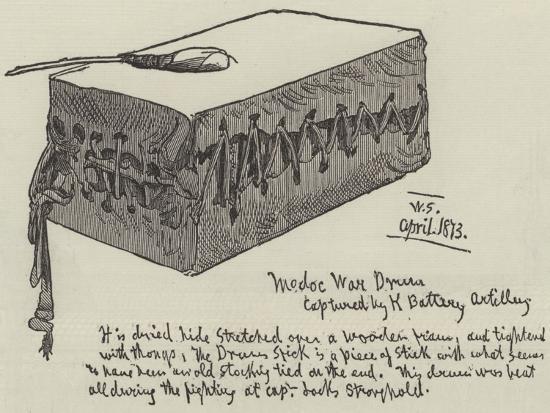 W.S.
April. 1873.
Modoc War Drum
Captured by K Battery Artillery
It is dried hide stretched over a wooden frame, and tightend
with thongs, The Drum Stick is a piece of stick with what seems
to have been an old stocking tied on the end. This drum was beat
all during the fighting at Capt- Jacks Stronghold.